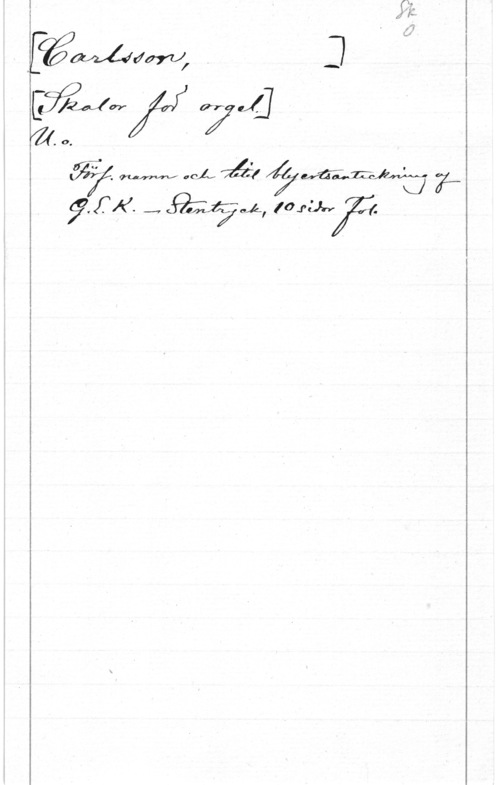 Sk
o
[Carlsson, ]
[Skalor för orgel.]
U. o.
Förf. namn och titel blyertsanteckning af
G. E. K. — Stentryck, 10 sidor Fol.